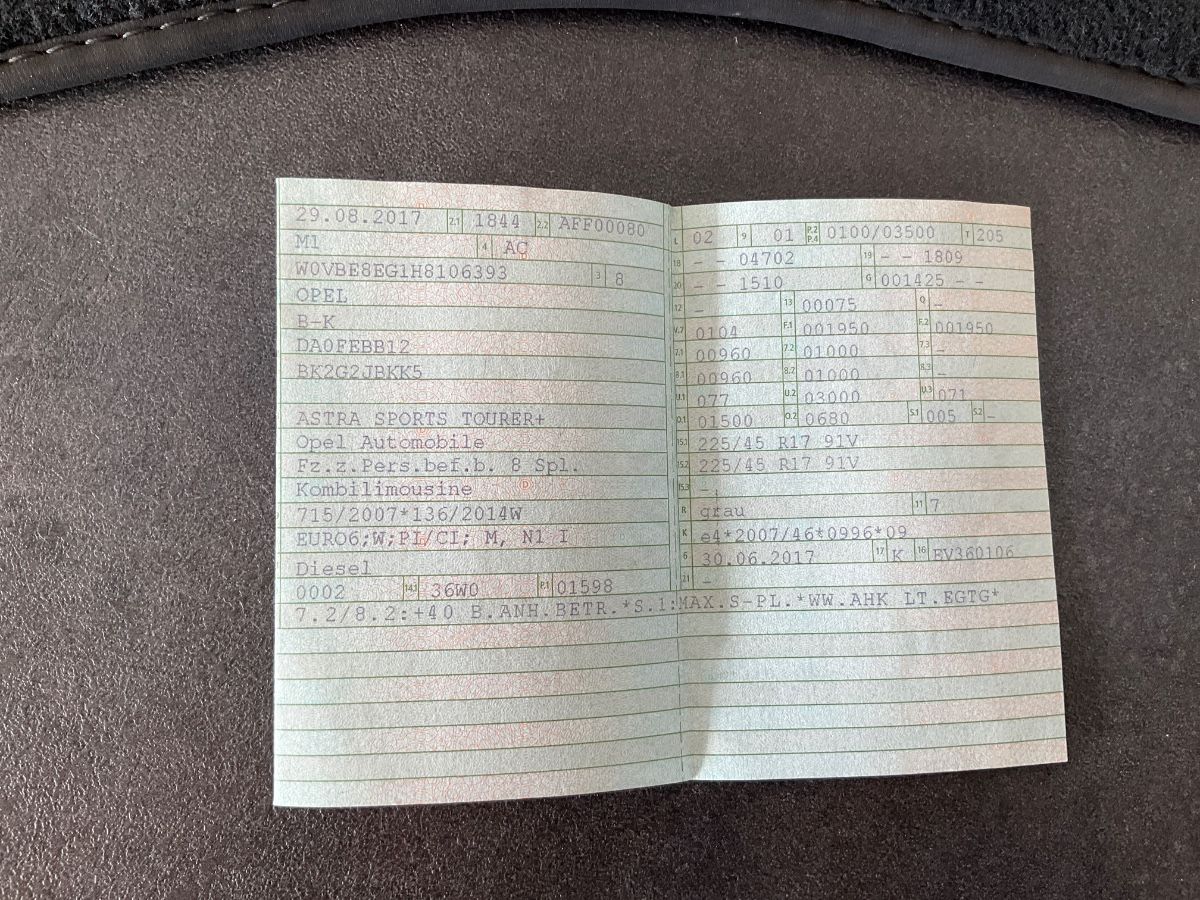 29.08.2017 2.1 1844 2.2 AFF00080
M1 4 AC
W0VBE8EG1H8106393 3 8
OPEL
B-K
DA0FEBB12
BK2G2JBKK5
ASTRA SPORTS TOURER+
Opel Automobile
Fz.z.Pers.bef.b. 8 Spl.
Kombilimousine
715/2007*136/2014W
EURO6;W;PI/CI; M, N1 I
Diesel
0002 14.1 36W0 P.1 01598
L 02 9 01 P.2 P.4 0100/03500 T 205
18 - - 04702 19 - - 1809
20 - - 1510 G 001425 - -
12 - 13 00075 Q -
V.7 0104 F.1 001950 F.2 001950
7.1 00960 7.2 01000 7.3 -
8.1 00960 8.2 01000 8.3 -
U.1 077 U.2 03000 U.3 071
O.1 01500 O.2 0680 S.1 005 S.2 -
15.1 225/45 R17 91V
15.2 225/45 R17 91V
15.3 -
R grau 11 7
K e4*2007/46*0996*09
6 30.06.2017 17 K 16 EV360106
21 -
7.2/8.2:+40 B.ANH.BETR.*S.1:MAX.S-PL.*WW.AHK LT.EGTG*